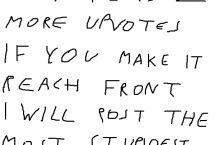 MORE UPVOTES
IF YOU MAKE IT
REACH FRONT
I WILL POST THE
MOST STUPIDEST